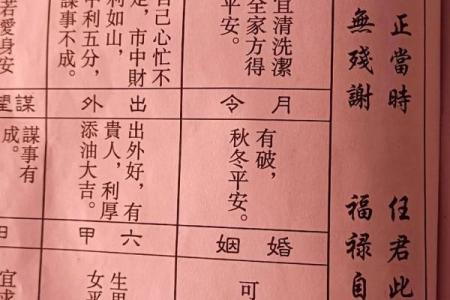 正當時 任君此
無殘謝 福祿自
宜清洗潔
全家方得
平安。
月令
有破，
秋冬平安。
婚姻
可
自己心忙不
，市中財
利如山，
中利五分，
謀事不成。
出外
出外好，有
貴人，利厚
添油大吉。
六甲
生男
女平
若愛身安
謀望
謀事有
成。
日
宜求